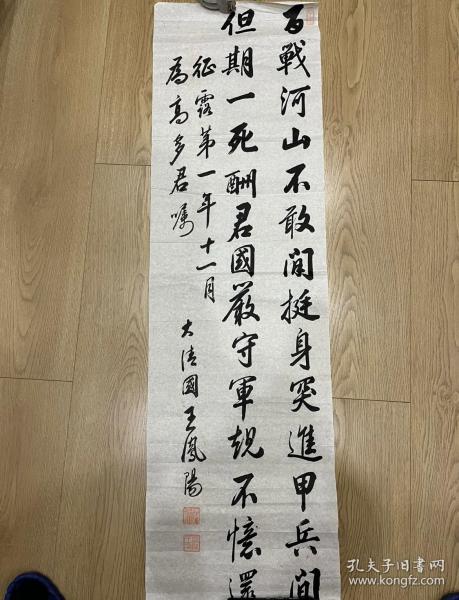 百戰河山不敢閒挺身突進甲兵間
但期一死酬君國嚴守軍規不憶還
征露第一年十一月
為高多君囑
大清國王鳳陽
孔夫子旧书网
www.kongfz.com